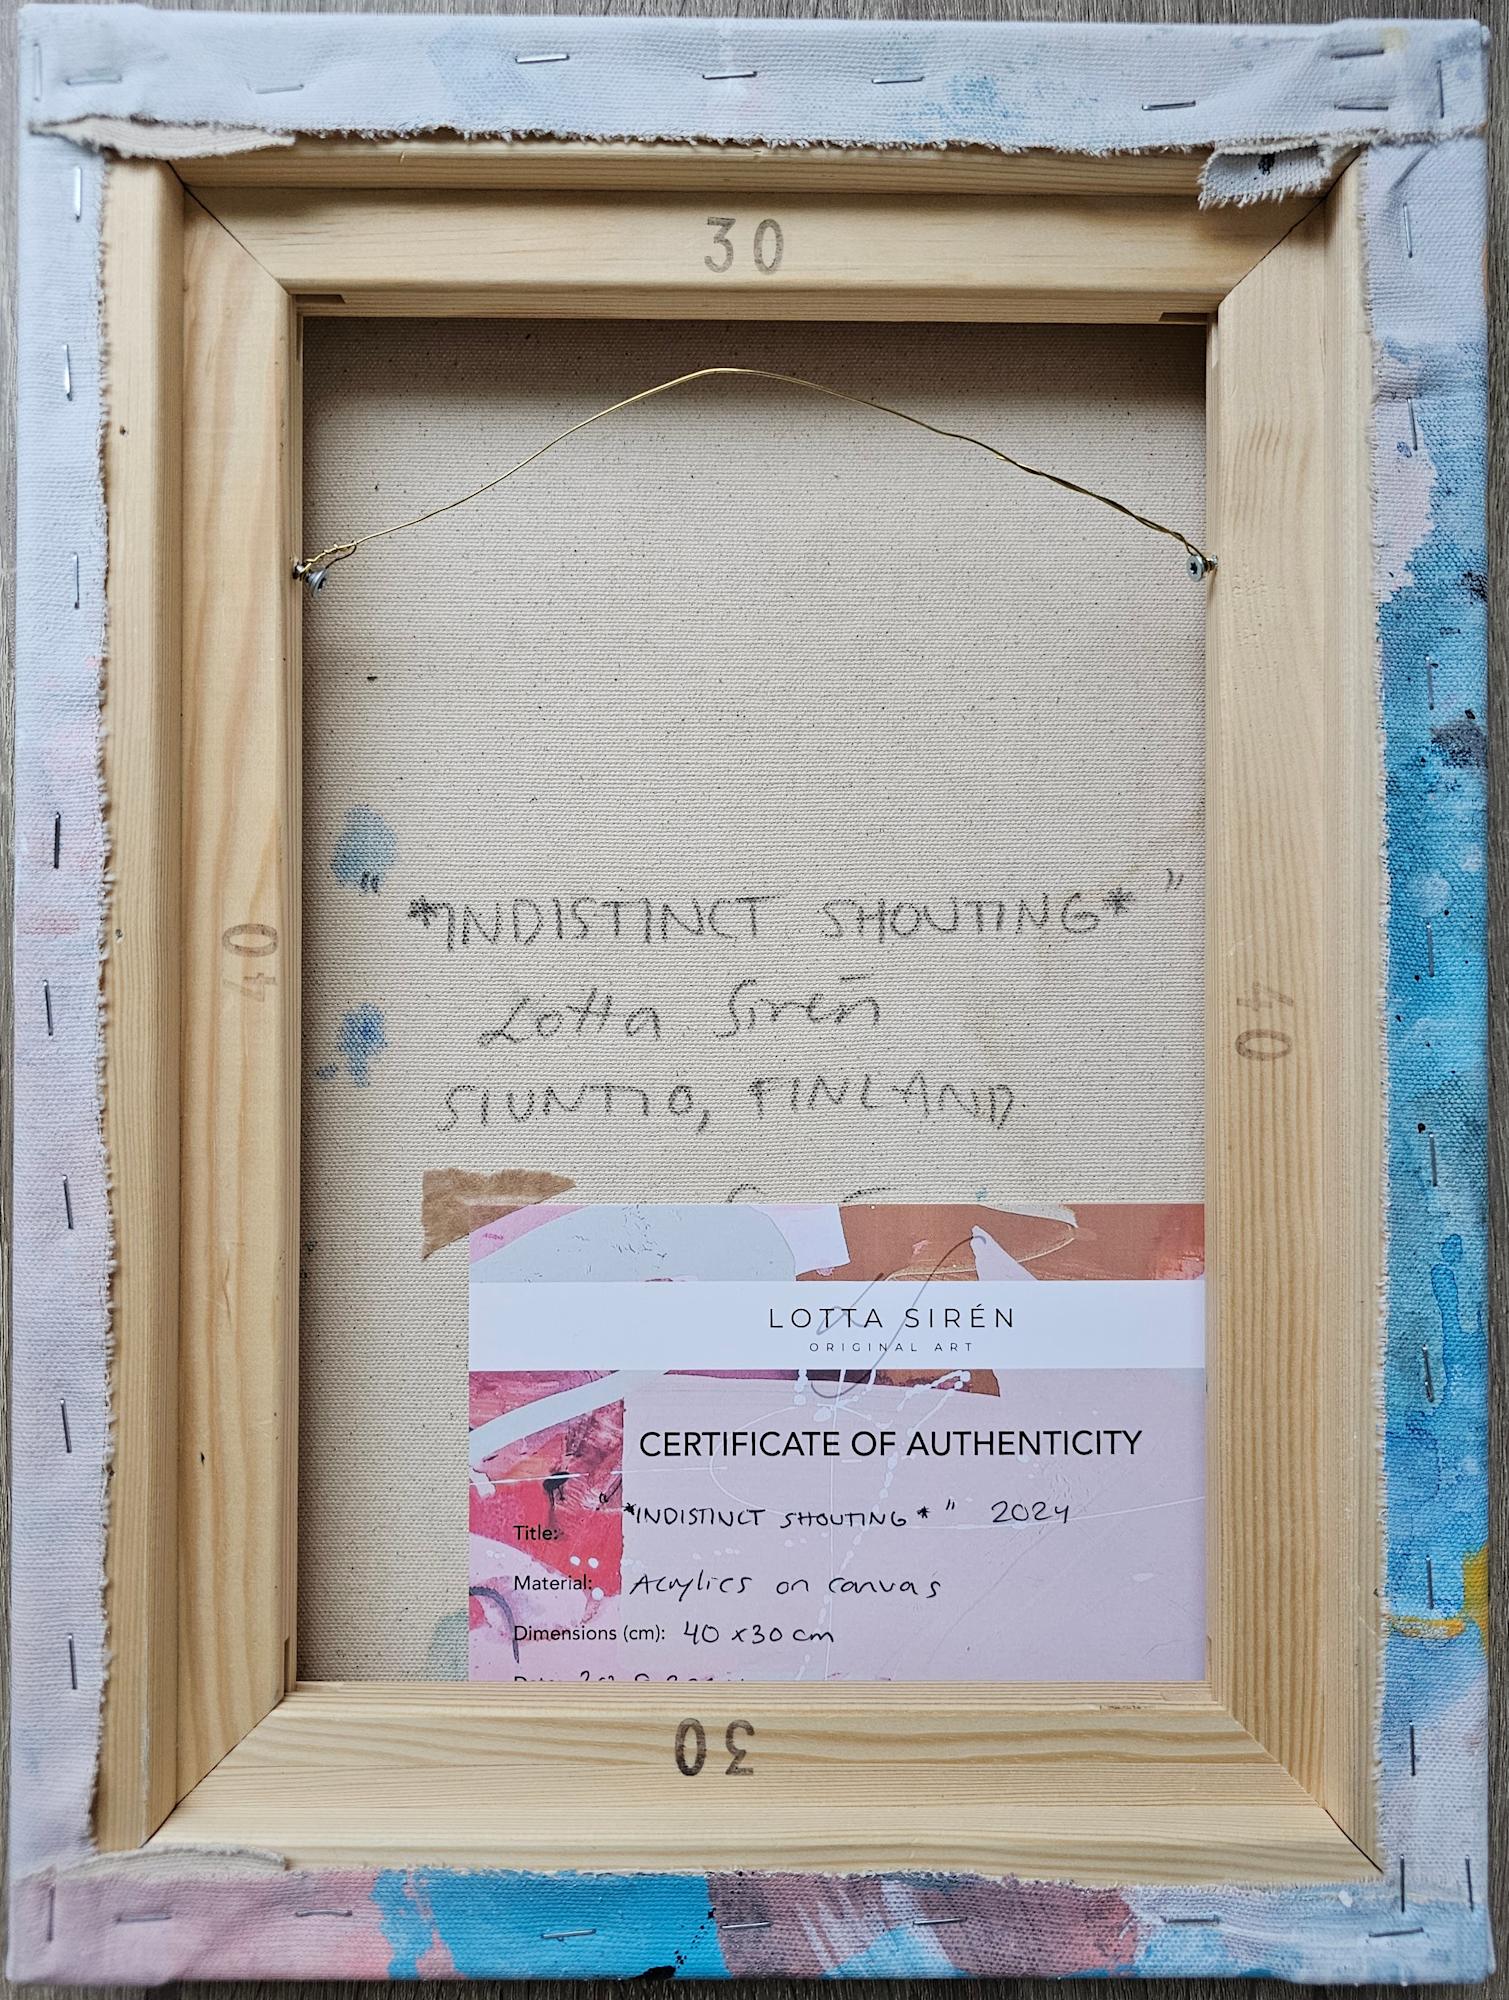 30
40
"*INDISTINCT SHOUTING*"
Lotta Sirén
SIUNTIO, FINLAND
40
LOTTA SIRÉN
ORIGINAL ART
CERTIFICATE OF AUTHENTICITY
Title: "*INDISTINCT SHOUTING*" 2024
Material: Acrylics on canvas
Dimensions (cm): 40 x 30 cm
30